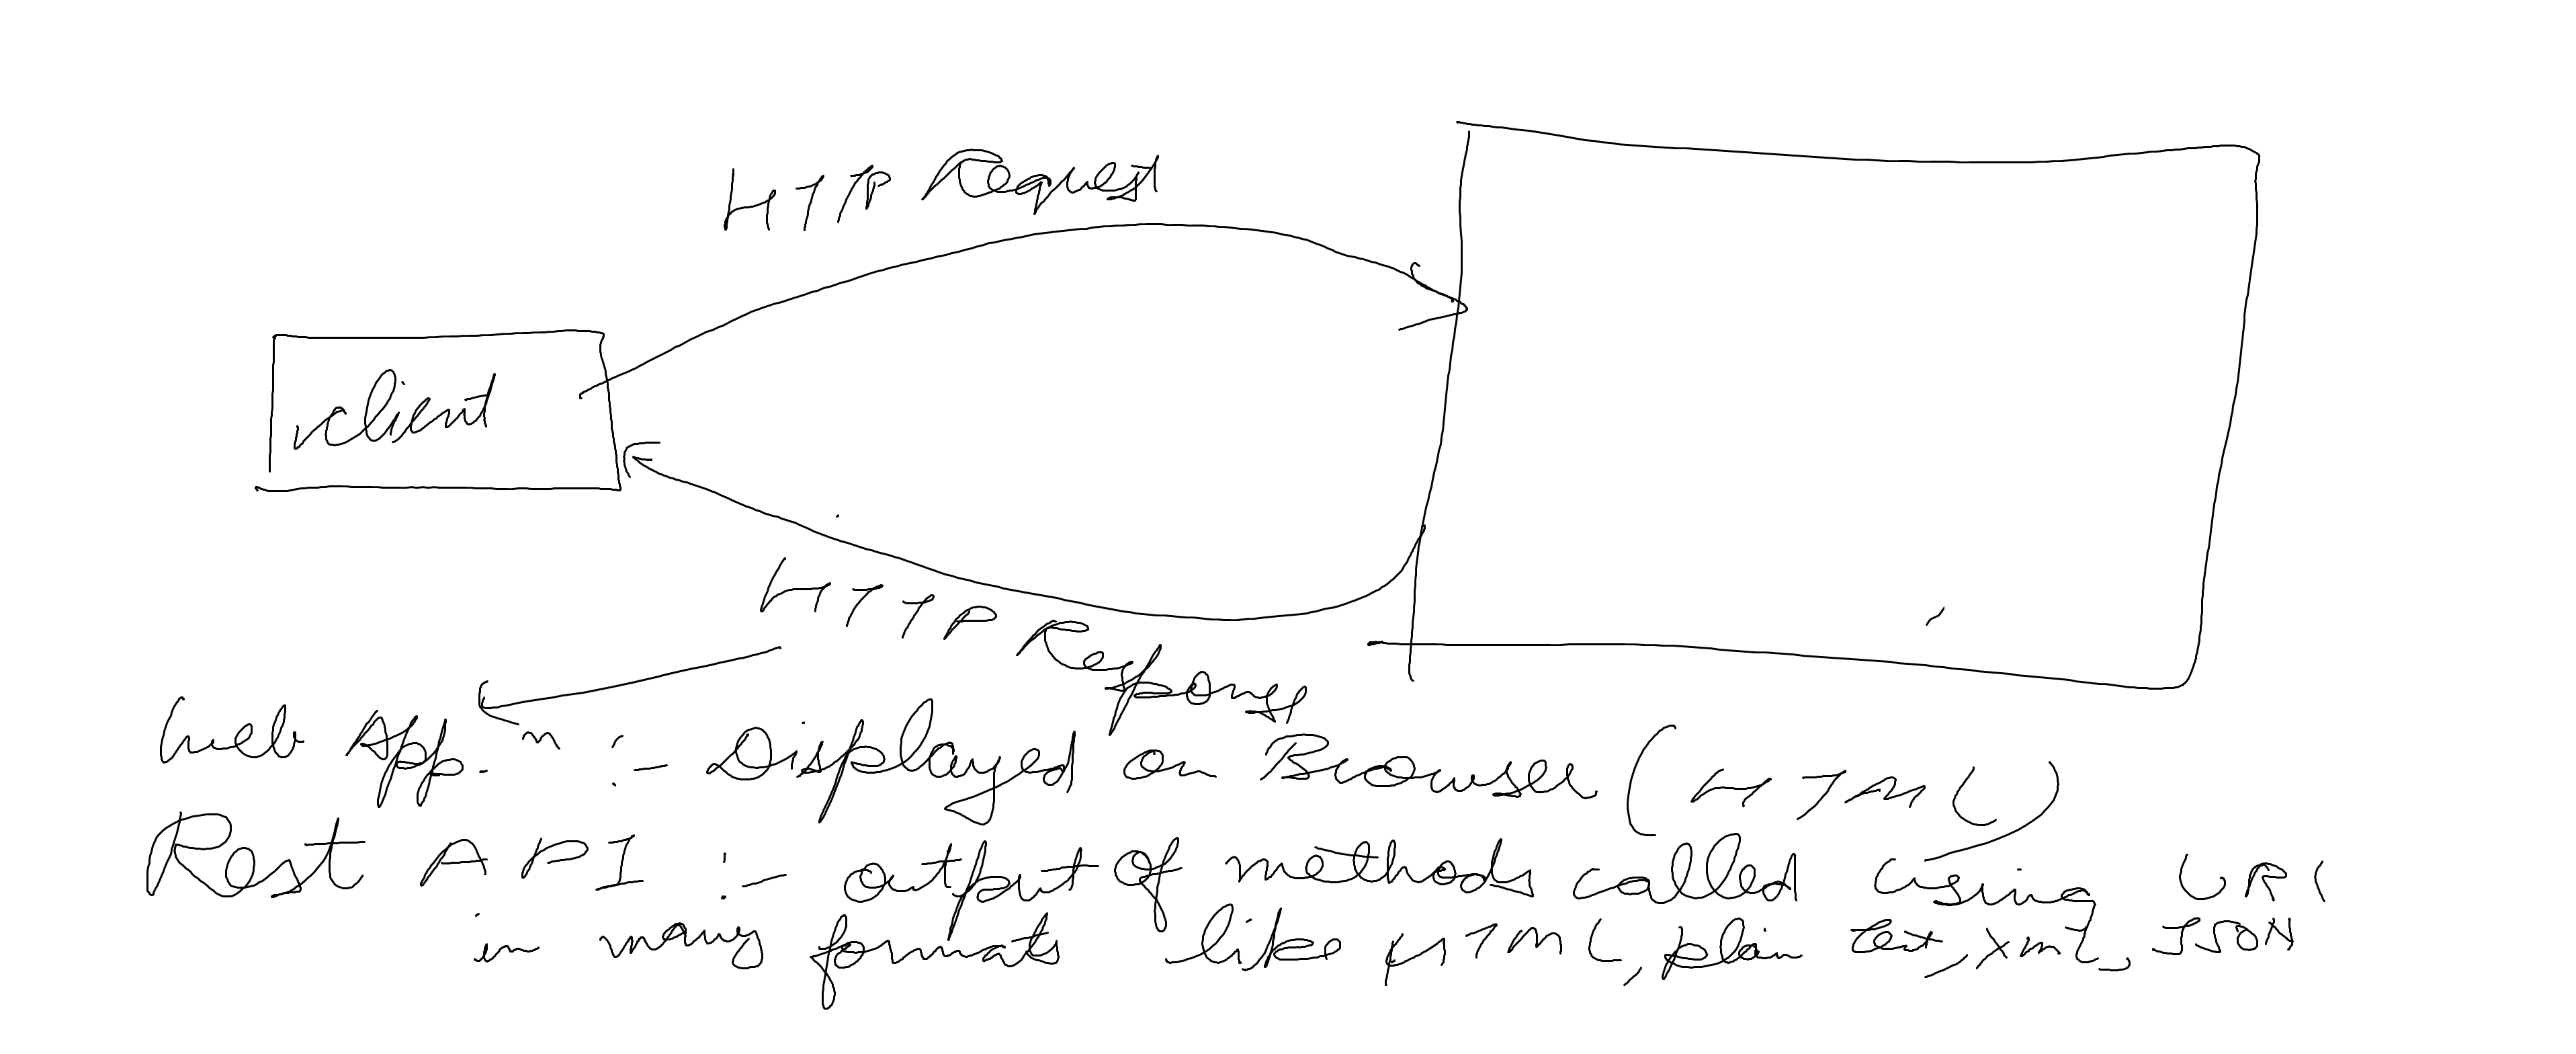 HTTP Request
client
HTTP Response
Web App.n :- Displayed on Browser (HTML)
Rest API :- output of methods called using URI
in many formats like HTML, plain text, XML, JSON